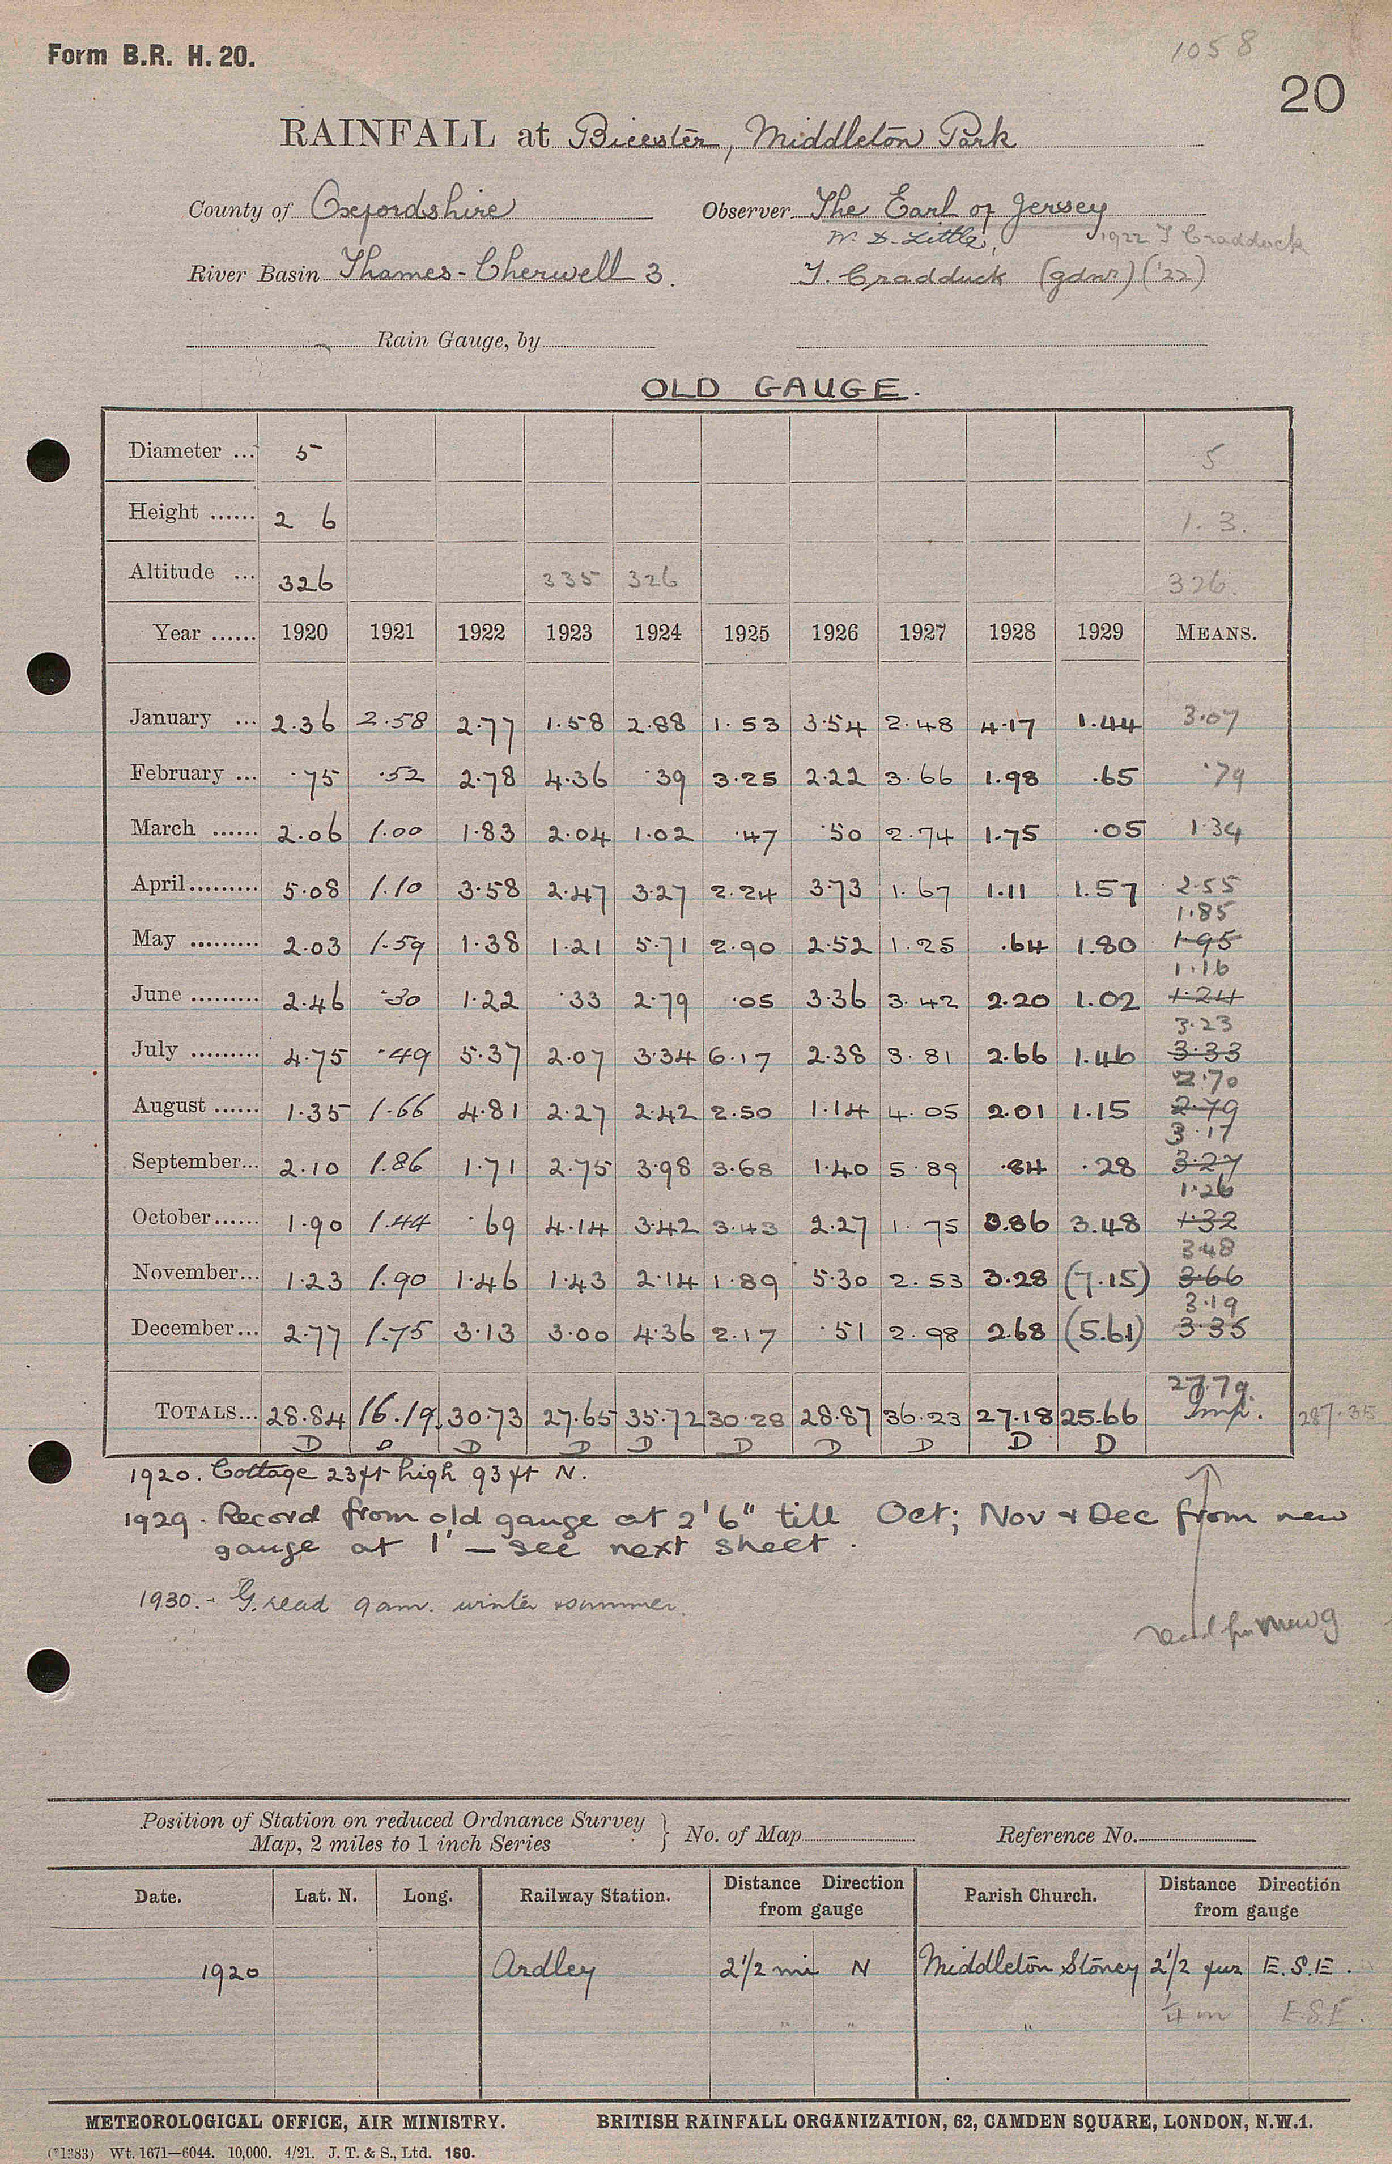 Form B.R. H. 20.
1058
20
RAINFALL at Bicester, Middleton Park
County of Oxfordshire Observer The Earl of Jersey
W. D. Little, 1922 T Craddock
River Basin Thames - Cherwell 3. T. Cradduck (gdnr) ('22)
Rain Gauge, by
OLD GAUGE.
Diameter ... 5 5
Height ...... 2 6 1. 3.
Altitude ... 326 335 326 326.
Year ...... 1920 1921 1922 1923 1924 1925 1926 1927 1928 1929 MEANS.
January ... 2.36 2.58 2.77 1.58 2.88 1.53 3.54 2.48 4.17 1.44 3.07
February ... .75 .52 2.78 4.36 .39 3.25 2.22 3.66 1.98 .65 .79
March ...... 2.06 1.00 1.83 2.04 1.02 .47 .50 2.74 1.75 .05 1.34
April......... 5.08 1.10 3.58 2.47 3.27 2.24 3.73 1.67 1.11 1.57 2.55
1.85
May ......... 2.03 1.59 1.38 1.21 5.71 2.90 2.52 1.25 .64 1.80 1.95
1.16
June ......... 2.46 .30 1.22 .33 2.79 .05 3.36 3.42 2.20 1.02 1.24
3.23
July ......... 4.75 .49 5.37 2.07 3.34 6.17 2.38 3.81 2.66 1.46 3.33
2.70
August ...... 1.35 1.66 4.81 2.27 2.42 2.50 1.14 4.05 2.01 1.15 2.79
3.17
September... 2.10 1.86 1.71 2.75 3.98 3.68 1.40 5.89 .84 .28 3.27
1.26
October...... 1.90 1.44 .69 4.14 3.42 3.43 2.27 1.75 3.86 3.48 1.32
3.48
November... 1.23 1.90 1.46 1.43 2.14 1.89 5.30 2.53 3.28 (7.15) 3.66
3.19
December... 2.77 1.75 3.13 3.00 4.36 2.17 .51 2.98 2.68 (5.61) 3.35
27.79.
TOTALS... 28.84 16.19 30.73 27.65 35.72 30.28 28.87 36.23 27.18 25.66 Imp. 287.35
D D D D D D D D D D
1920. Cottage 23ft high 93 ft N.
1929. Record from old gauge at 2' 6" till Oct; Nov & Dec from new
gauge at 1' — see next sheet.
1930. - G. read 9am. winter & summer.
Position of Station on reduced Ordnance Survey
Map, 2 miles to 1 inch Series } No. of Map Reference No.
Date. Lat. N. Long. Railway Station. Distance from gauge Direction Parish Church. Distance from gauge Direction
1920 Ardley 2 1/2 mi N Middleton Stoney 2 1/2 fur E.S.E.
" " " 1/4 m E.S.E.
METEOROLOGICAL OFFICE, AIR MINISTRY. BRITISH RAINFALL ORGANIZATION, 62, CAMDEN SQUARE, LONDON, N.W.1.
(*1383) Wt. 1671—6044. 10,000. 4/21. J. T. & S., Ltd. 160.